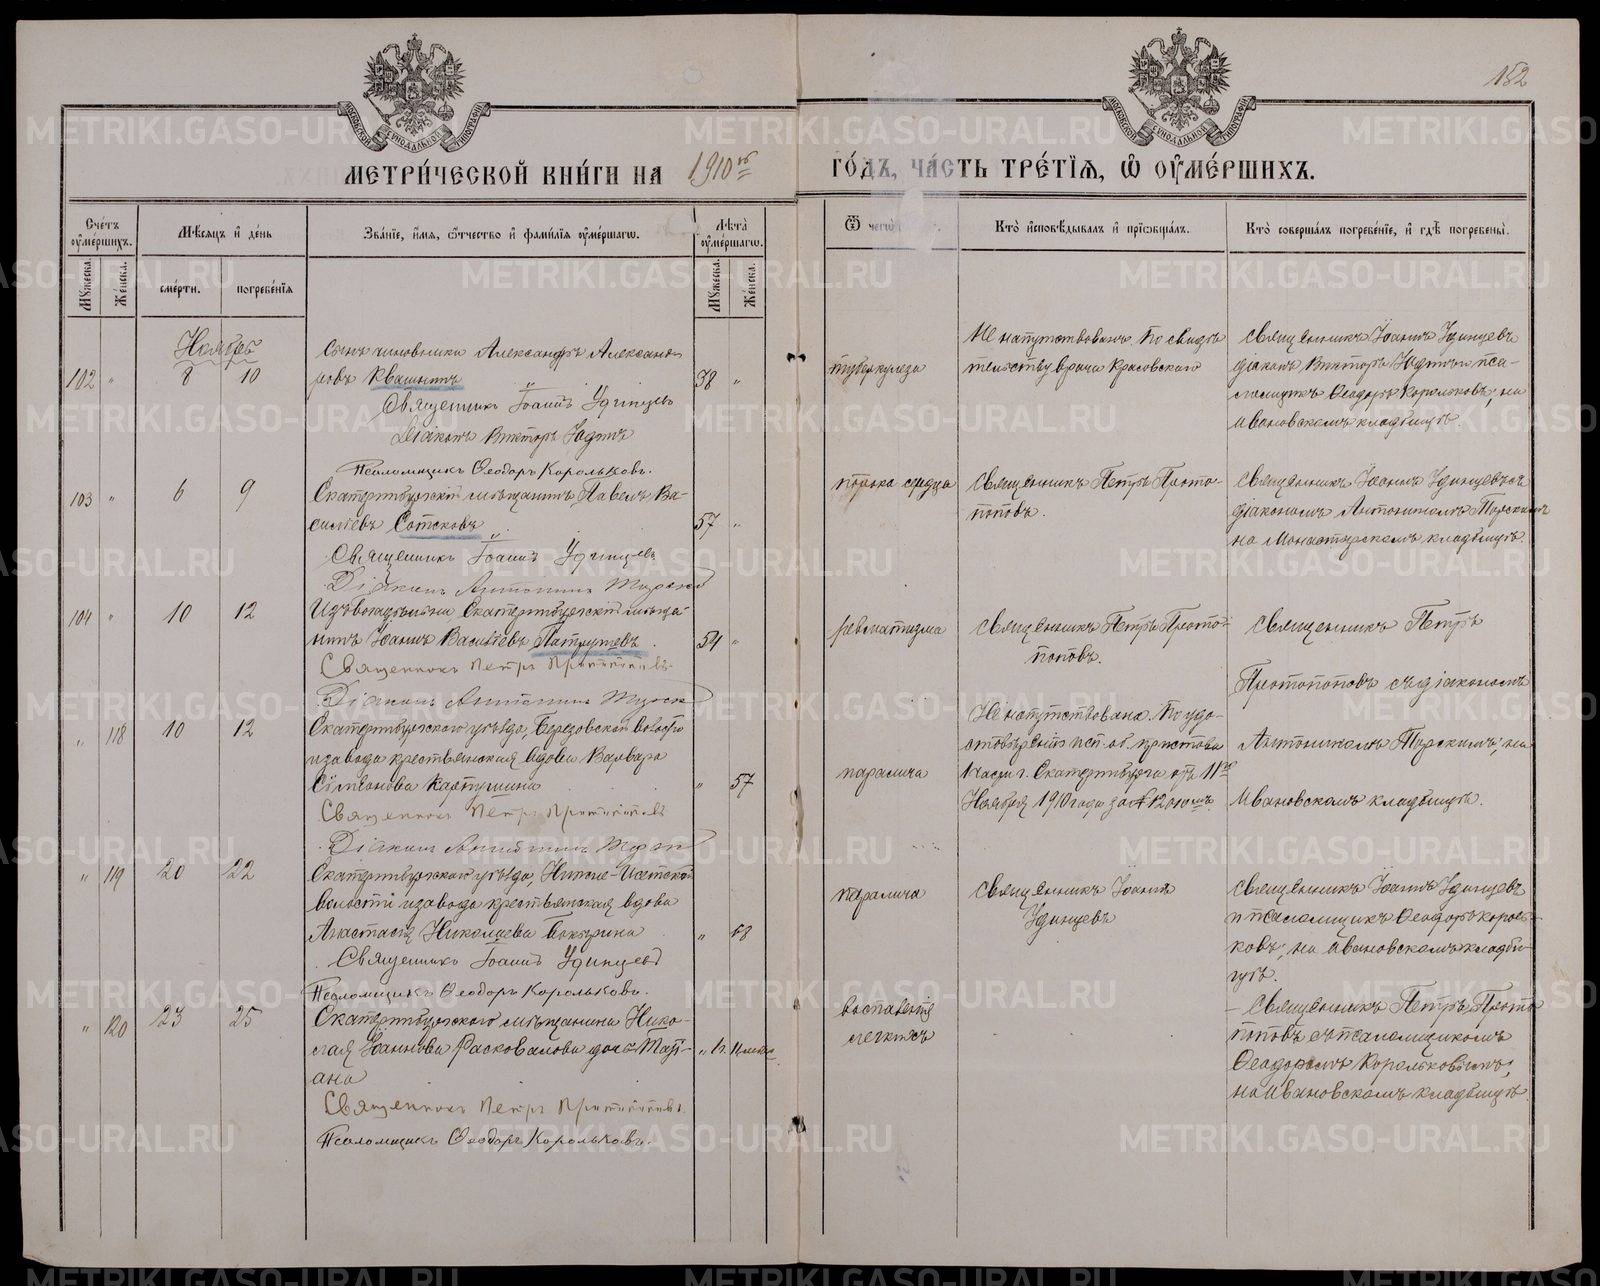 152
МЕТРИ́ЧЕСКОЙ КНИ́ГИ НА 1910 й ГО́ДЪ, ЧА́СТЬ ТРЕ́ТІЯ, Ѿ ОУ҆МЕ́РШИХЪ.
Счетъ оумершихъ.
Мужеска.
Женска.
Мѣсяцъ и день
смерти.
погребенія
Званіе, имя, отчество и фамилія оумершагѡ.
Лѣта оумершагѡ.
Мужеска.
Женска.
Ѿ чегѡ
Кто исповѣдывалъ и пріобщалъ.
Кто совершалъ погребеніе, и гдѣ погребены.
Ноябрь
102 " 8 10
Сынъ чиновника Александръ Александ-
ровъ Квашнинъ
38 "
Священникъ Іоаннъ Удинцевъ
Діаконъ Викторъ Юдинъ
Псаломщикъ Ѳеодоръ Корольковъ.
туберкулеза
Не напутствованъ. По свидѣ-
тельству врача Крассовскаго
Священникъ Іоаннъ Удинцевъ
діаконъ Викторъ Юдинъ и пса-
ломщикъ Ѳеодоръ Корольковъ; на
Ивановскомъ кладбищѣ.
103 " 6 9
Екатеринбургскій мѣщанинъ Павелъ Ва-
сильевъ Сотсковъ
57 "
Священникъ Іоаннъ Удинцевъ
Діаконъ Антонинъ Турскій
порока сердца
Священникъ Петръ Прото-
поповъ.
Священникъ Іоаннъ Удинцевъ съ
діакономъ Антониномъ Турскимъ
на Монастырскомъ кладбищѣ.
104 " 10 12
Екатеринбургскій мѣща-
нинъ Іоаннъ Васильевъ Патрушевъ.
54 "
Священникъ Петръ Протопоповъ
Діаконъ Антонинъ Турскій
ревматизма
Священникъ Петръ Прото-
поповъ.
Священникъ Петръ
Протопоповъ съ діакономъ
Антониномъ Турскимъ; на
Ивановскомъ кладбищѣ.
" 118 10 12
Екатеринбургскаго уѣзда, Березовской волости
и завода крестьянская вдова Варвара
Симеонова Карпушина
" 57
Священникъ Петръ Протопоповъ
Діаконъ Антонинъ Турскій
паралича
Не напутствована. По удо-
стовѣренію исп. об. пристава
1 части г. Екатеринбурга отъ 11го
Ноября 1910 года за №
" 119 20 22
Екатеринбургскаго уѣзда, Нижне-Исетской
волости и завода крестьянская вдова
Анастасія Николаева Бокарина
" 68
Священникъ Іоаннъ Удинцевъ
Псаломщикъ Ѳеодоръ Корольковъ.
паралича
Священникъ Іоаннъ
Удинцевъ
Священникъ Іоаннъ Удинцевъ
и псаломщикъ Ѳеодоръ Король-
ковъ; на Ивановскомъ кладби-
щѣ.
" 120 23 25
Екатеринбургскаго мѣщанина Нико-
лая Іоаннова Расковалова дочь Марі-
ана
Священникъ Петръ Протопоповъ.
Псаломщикъ Ѳеодоръ Корольковъ.
воспаленія
легкихъ
Священникъ Петръ Прото-
поповъ съ псаломщикомъ
Ѳеодоромъ Корольковымъ;
на Ивановскомъ кладбищѣ.
METRIKI.GASO-URAL.RU